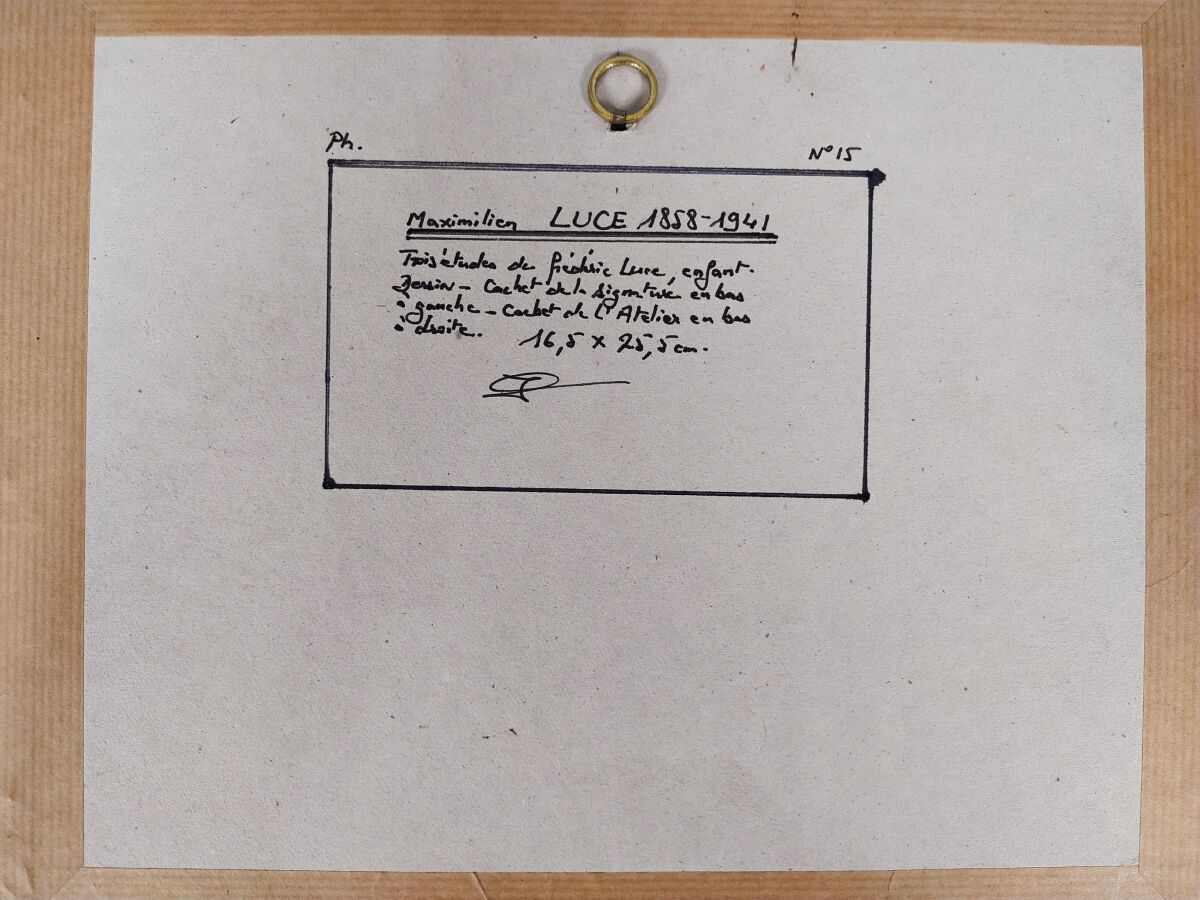 Ph.
N° 15
Maximilien LUCE 1858-1941
Trois études de frédéric Luce, enfant.
Dessin - Cachet de la signature en bas
à gauche - Cachet de l'Atelier en bas
à droite. 16,5 x 25,5 cm.